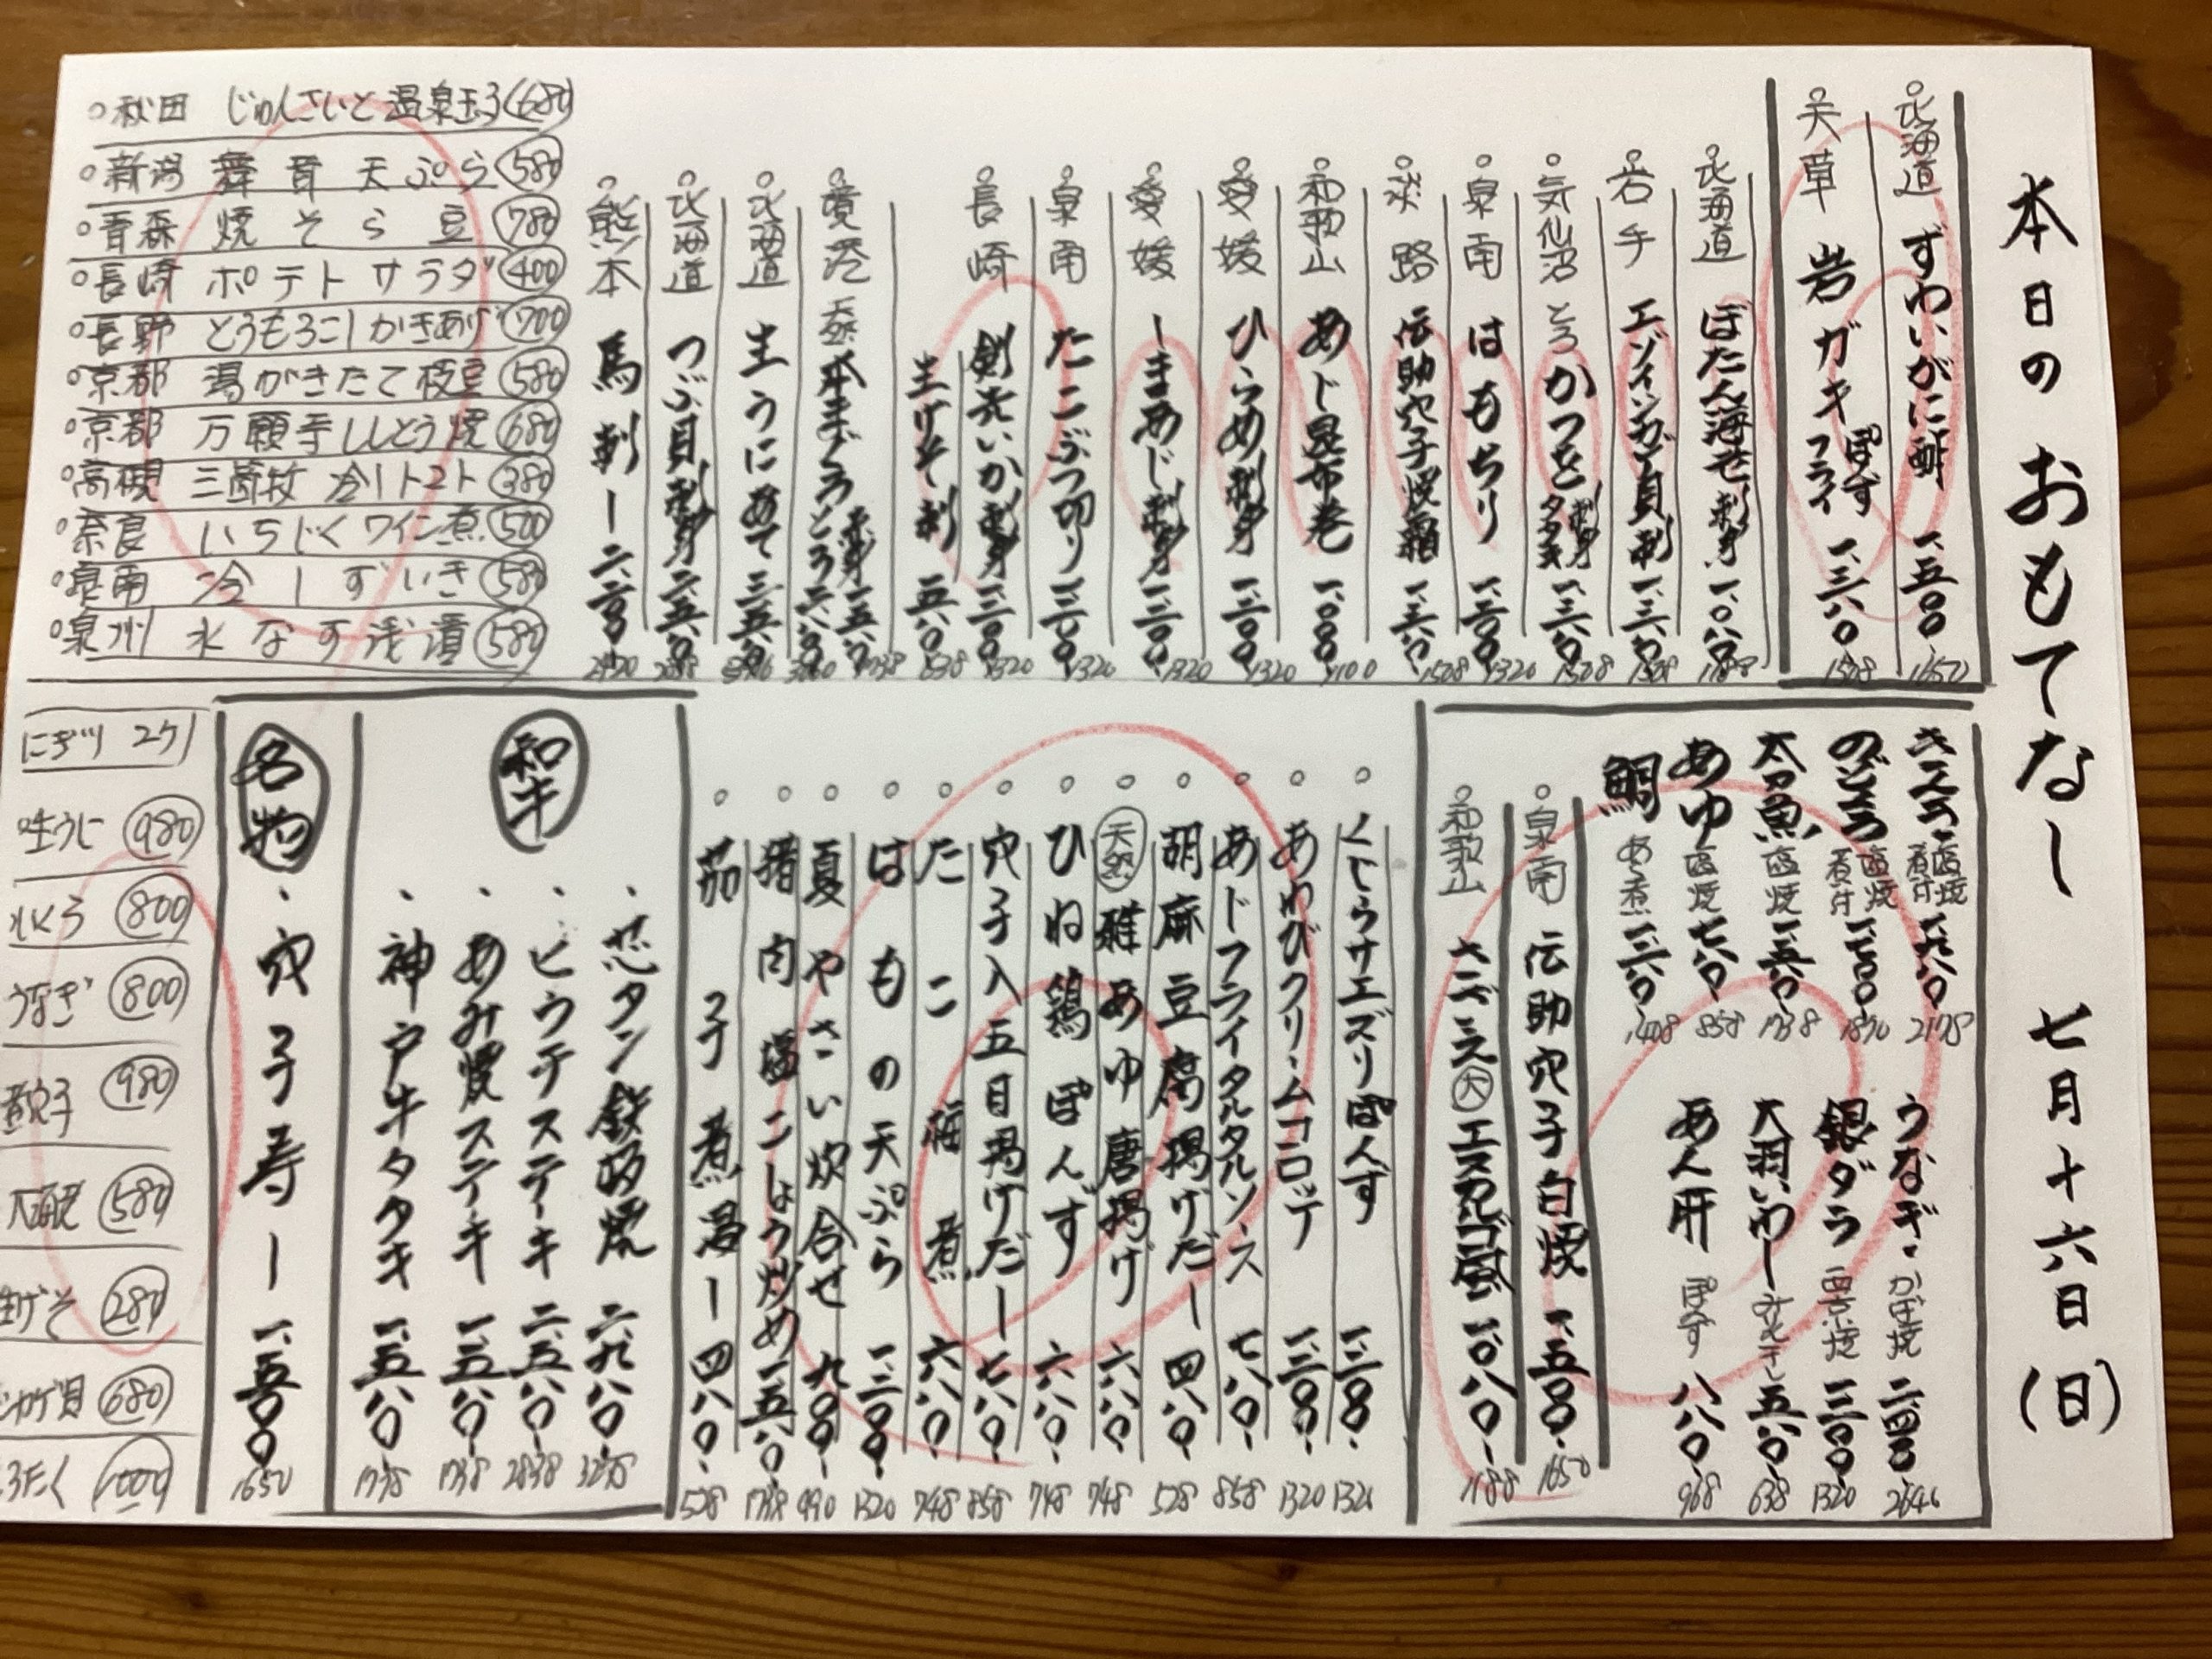 本日のおもてなし 七月十六日(日)
北海道 ずわいがに酢 一、五〇〇 1650
天草 岩ガキ ぽんず フライ 一、三八〇 1518
北海道 ぼたん海老刺身 一、〇八〇 1188
岩手 エゾイシガゲ貝刺 一、三八〇 1518
気仙沼 とろかつを 刺身 タタキ 一、三八〇 1518
泉南 はもちり 一、二〇〇 1320
淡路 伝助穴子焼霜 一、三八〇 1518
和歌山 あじ昆布巻 一、〇〇〇 1100
愛媛 ひらめ刺身 一、二〇〇 1320
愛媛 しまあじ刺身 一、二〇〇 1320
泉南 たこぶつ切り 一、二〇〇 1320
長崎 剣先いか刺身 一、二〇〇 1320
生げそ刺 五八〇 638
境港 天然本まぐろ 赤身 一、五八〇 1738
とろ 二、八〇〇
北海道 生うにあて 三、五八〇
北海道 つぶ貝刺身
熊本 馬刺し 二、二〇〇 2420
秋田 じゅんさいと温泉玉子 680
新潟 舞茸天ぷら 580
青森 焼そら豆 780
長崎 ポテトサラダ 400
長野 とうもろこしかきあげ 700
京都 湯がきたて枝豆 580
京都 万願寺ししとう焼 680
高槻 三箇牧 冷しトマト 380
奈良 いちじくワイン煮 500
泉南 冷しずいき 580
泉州 水なす浅漬 580
きんき 塩焼 煮付 一、九八〇 2178
のどぐろ 塩焼 煮付 一、七〇〇 1870
太刀魚 塩焼 一、五八〇 1738
あゆ 塩焼 七八〇 858
鯛 あら煮 一、二八〇 1408
うなぎ かば焼
銀ダラ 西京焼 一、二〇〇 1320
大羽いわし 五八〇 638
あん肝 ぽんず 八八〇 968
泉南 伝助穴子白焼 一、五〇〇 1650
和歌山 さざえ 大 エスカルゴ風 一、〇八〇 1188
くじらサエズリぽんず 一、二〇〇
あわびクリームコロッケ 一、二〇〇 1320
あじフライタルタルソース 七八〇 858
胡麻豆腐揚げだし 四八〇 528
天然 稚あゆ唐揚げ 六八〇 748
ひね鶏ぽんず 六八〇 748
穴子入五目揚げだし 七八〇 858
たこ 煮 六八〇 748
はもの天ぷら 一、二〇〇 1320
夏やさい炊合せ 九〇〇 990
猪肉塩こしょう炒め 一、五八〇 1738
茄子煮湯し 四八〇 528
和牛
芯タン鉄板焼 二、九八〇 3278
ヒウチステーキ 二、五八〇 2838
あみ焼ステーキ 一、五八〇 1738
神戸牛タタキ 一、五八〇 1738
名物
穴子寿し 一、五〇〇 1650
にぎり 2ケ
生うに 980
とろ 800
うなぎ 800
煮穴子 980
580
生げそ 280
680